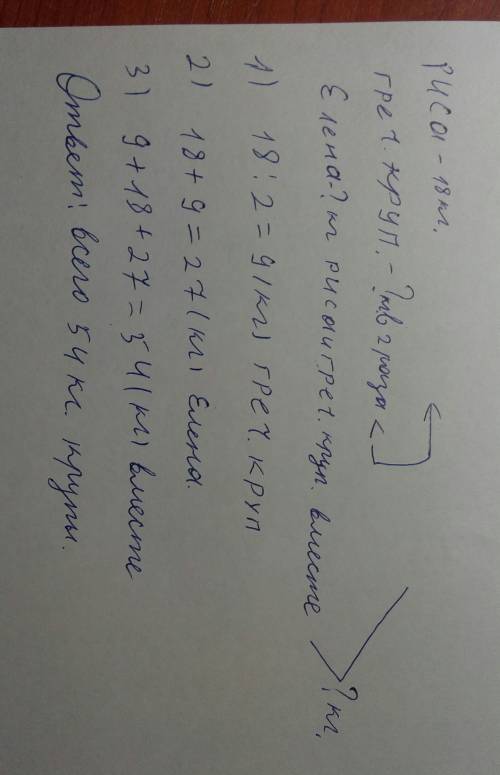 Риса - 18 кг.
греч. круп. - ? кг в 2 раза <
Елена - ? кг риса и греч. круп. вместе
? кг.
1) 18 : 2 = 9 (кг) греч. круп
2) 18 + 9 = 27 (кг) Елена.
3) 9 + 18 + 27 = 54 (кг) вместе
Ответ: всего 54 кг. крупы.